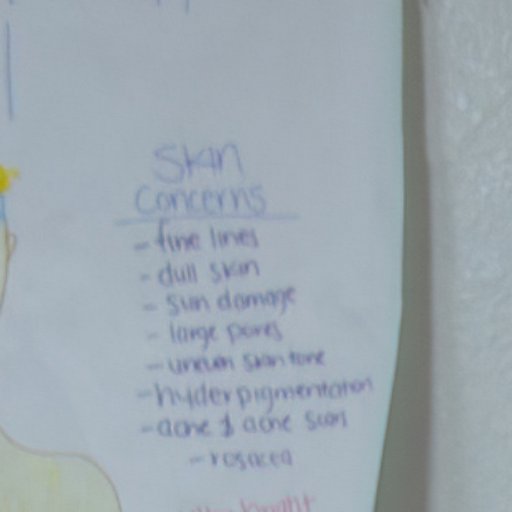 Skin
Concerns
- fine lines
- dull skin
- sun damage
- large pores
- uneven skin tone
- hyderpigmentation
- acne & acne scars
- rosacea